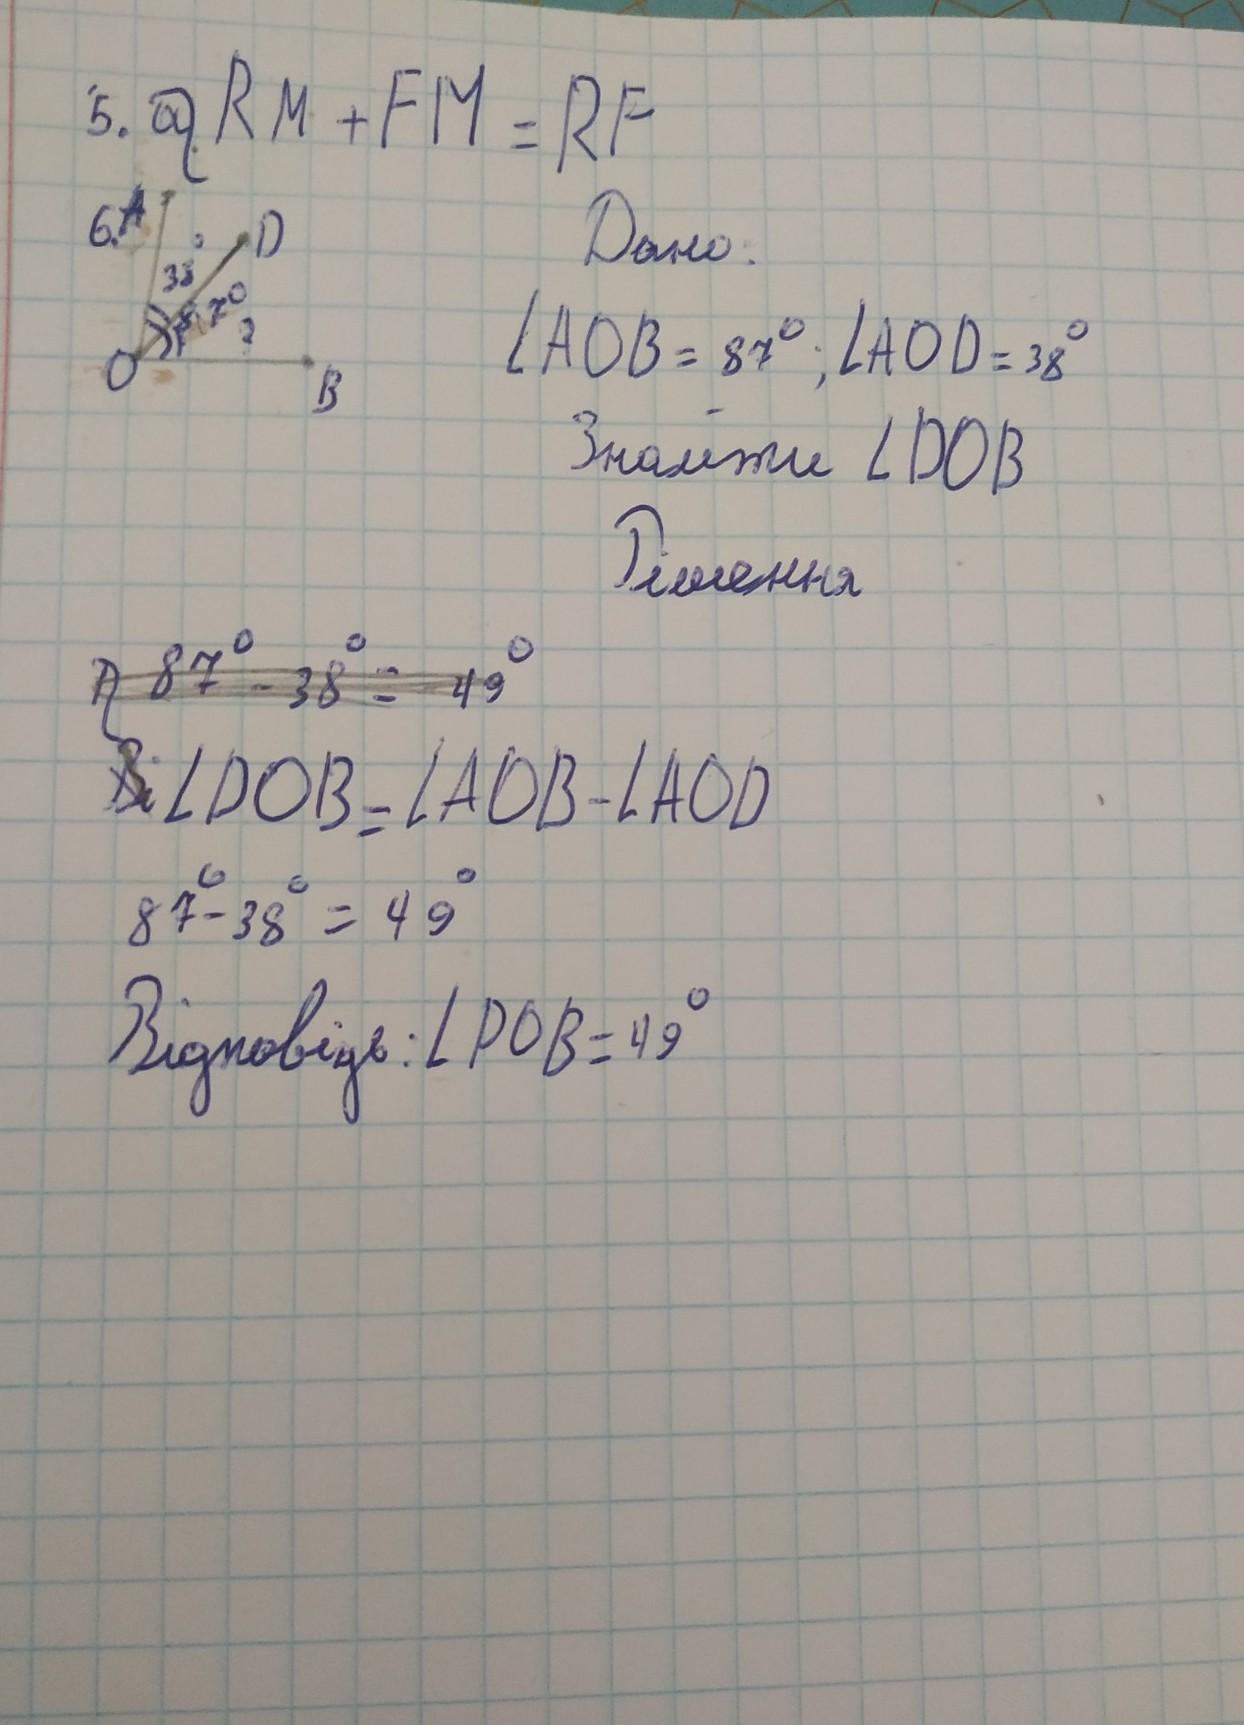 5. а) RM + FM = RF
6. A
D
38°
87°
?
O
B
Дано:
∠AOB = 87°; ∠AOD = 38°
Знайти ∠DOB
Рішення
87° - 38° = 49°
∠DOB = ∠AOB - ∠AOD
87° - 38° = 49°
Відповідь: ∠DOB = 49°